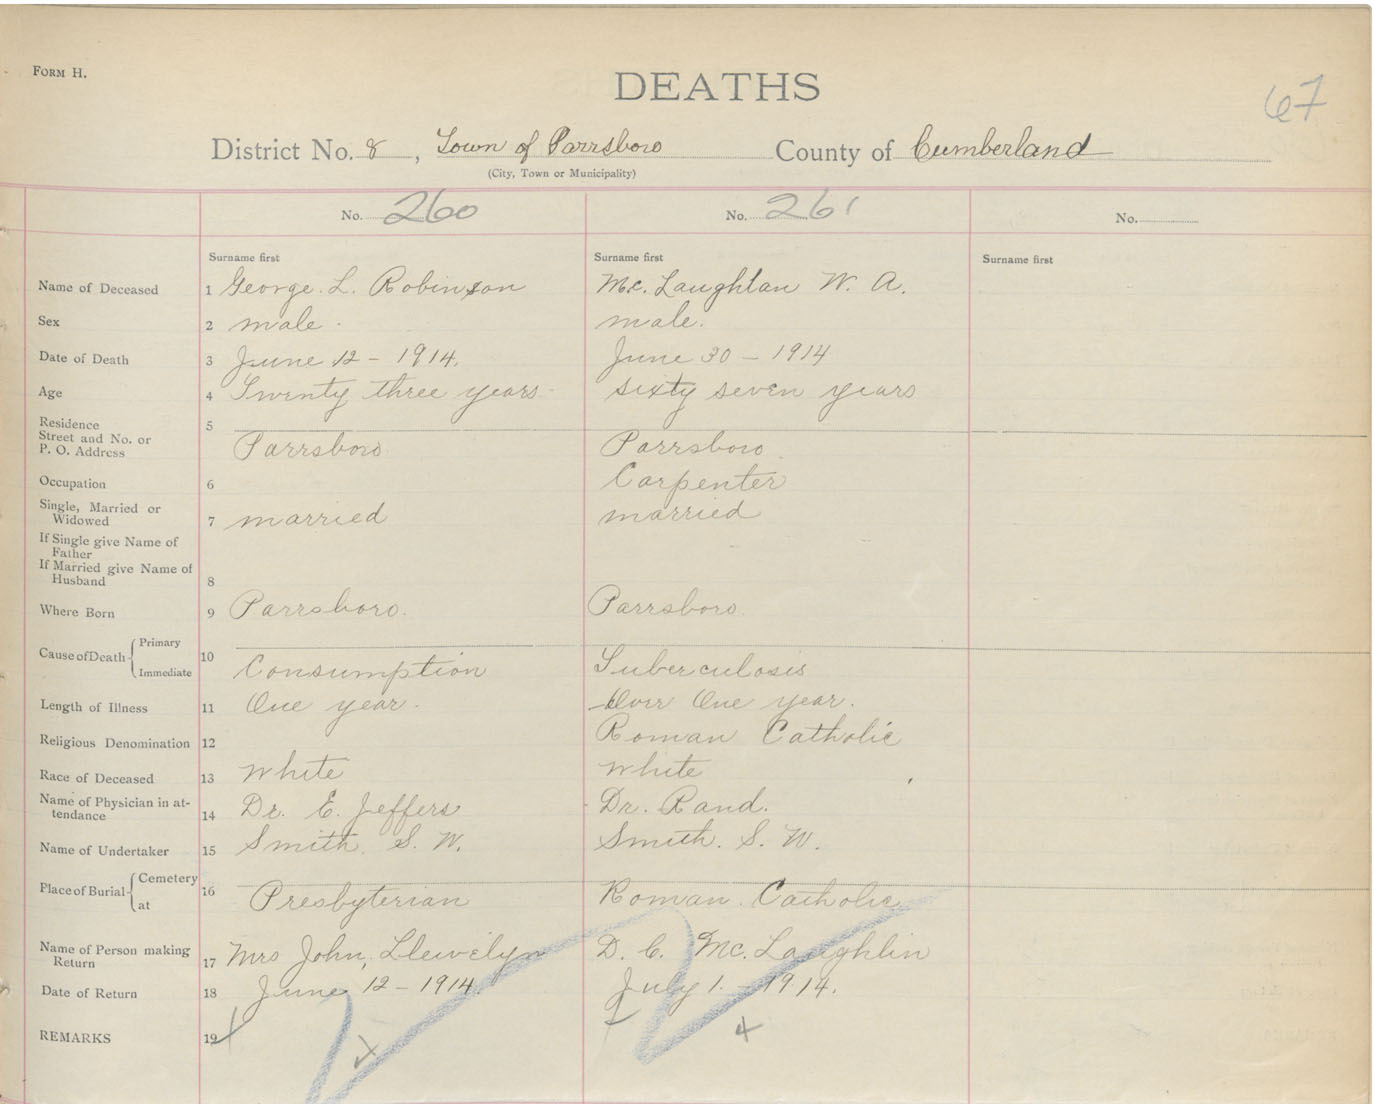 FORM H.
DEATHS
67
District No. 8, Town of Parrsboro County of Cumberland
(City, Town or Municipality)
No. 260 No. 261 No.
Surname first Surname first Surname first
Name of Deceased 1 George. L. Robinson Mc. Laughlan W. A.
Sex 2 male. male.
Date of Death 3 June 12 - 1914. June 30 - 1914
Age 4 Twenty three years sixty seven years
Residence
Street and No. or
P. O. Address 5 Parrsboro Parrsboro
Occupation 6 Carpenter
Single, Married or
Widowed 7 married married
If Single give Name of
Father
If Married give Name of
Husband 8
Where Born 9 Parrsboro. Parrsboro
Cause of Death { Primary
Immediate 10 Consumption Tuberculosis
Length of Illness 11 One year. Over One year.
Religious Denomination 12 Roman Catholic
Race of Deceased 13 White White
Name of Physician in at-
tendance 14 Dr. E. Jeffers Dr. Rand.
Name of Undertaker 15 Smith S. W. Smith. S. W.
Place of Burial { Cemetery
at 16 Presbyterian Roman Catholic
Name of Person making
Return 17 Mrs John, Llewelyn D. C. Mc. Laughlin
Date of Return 18 June 12 - 1914. July 1. - 1914.
REMARKS 19